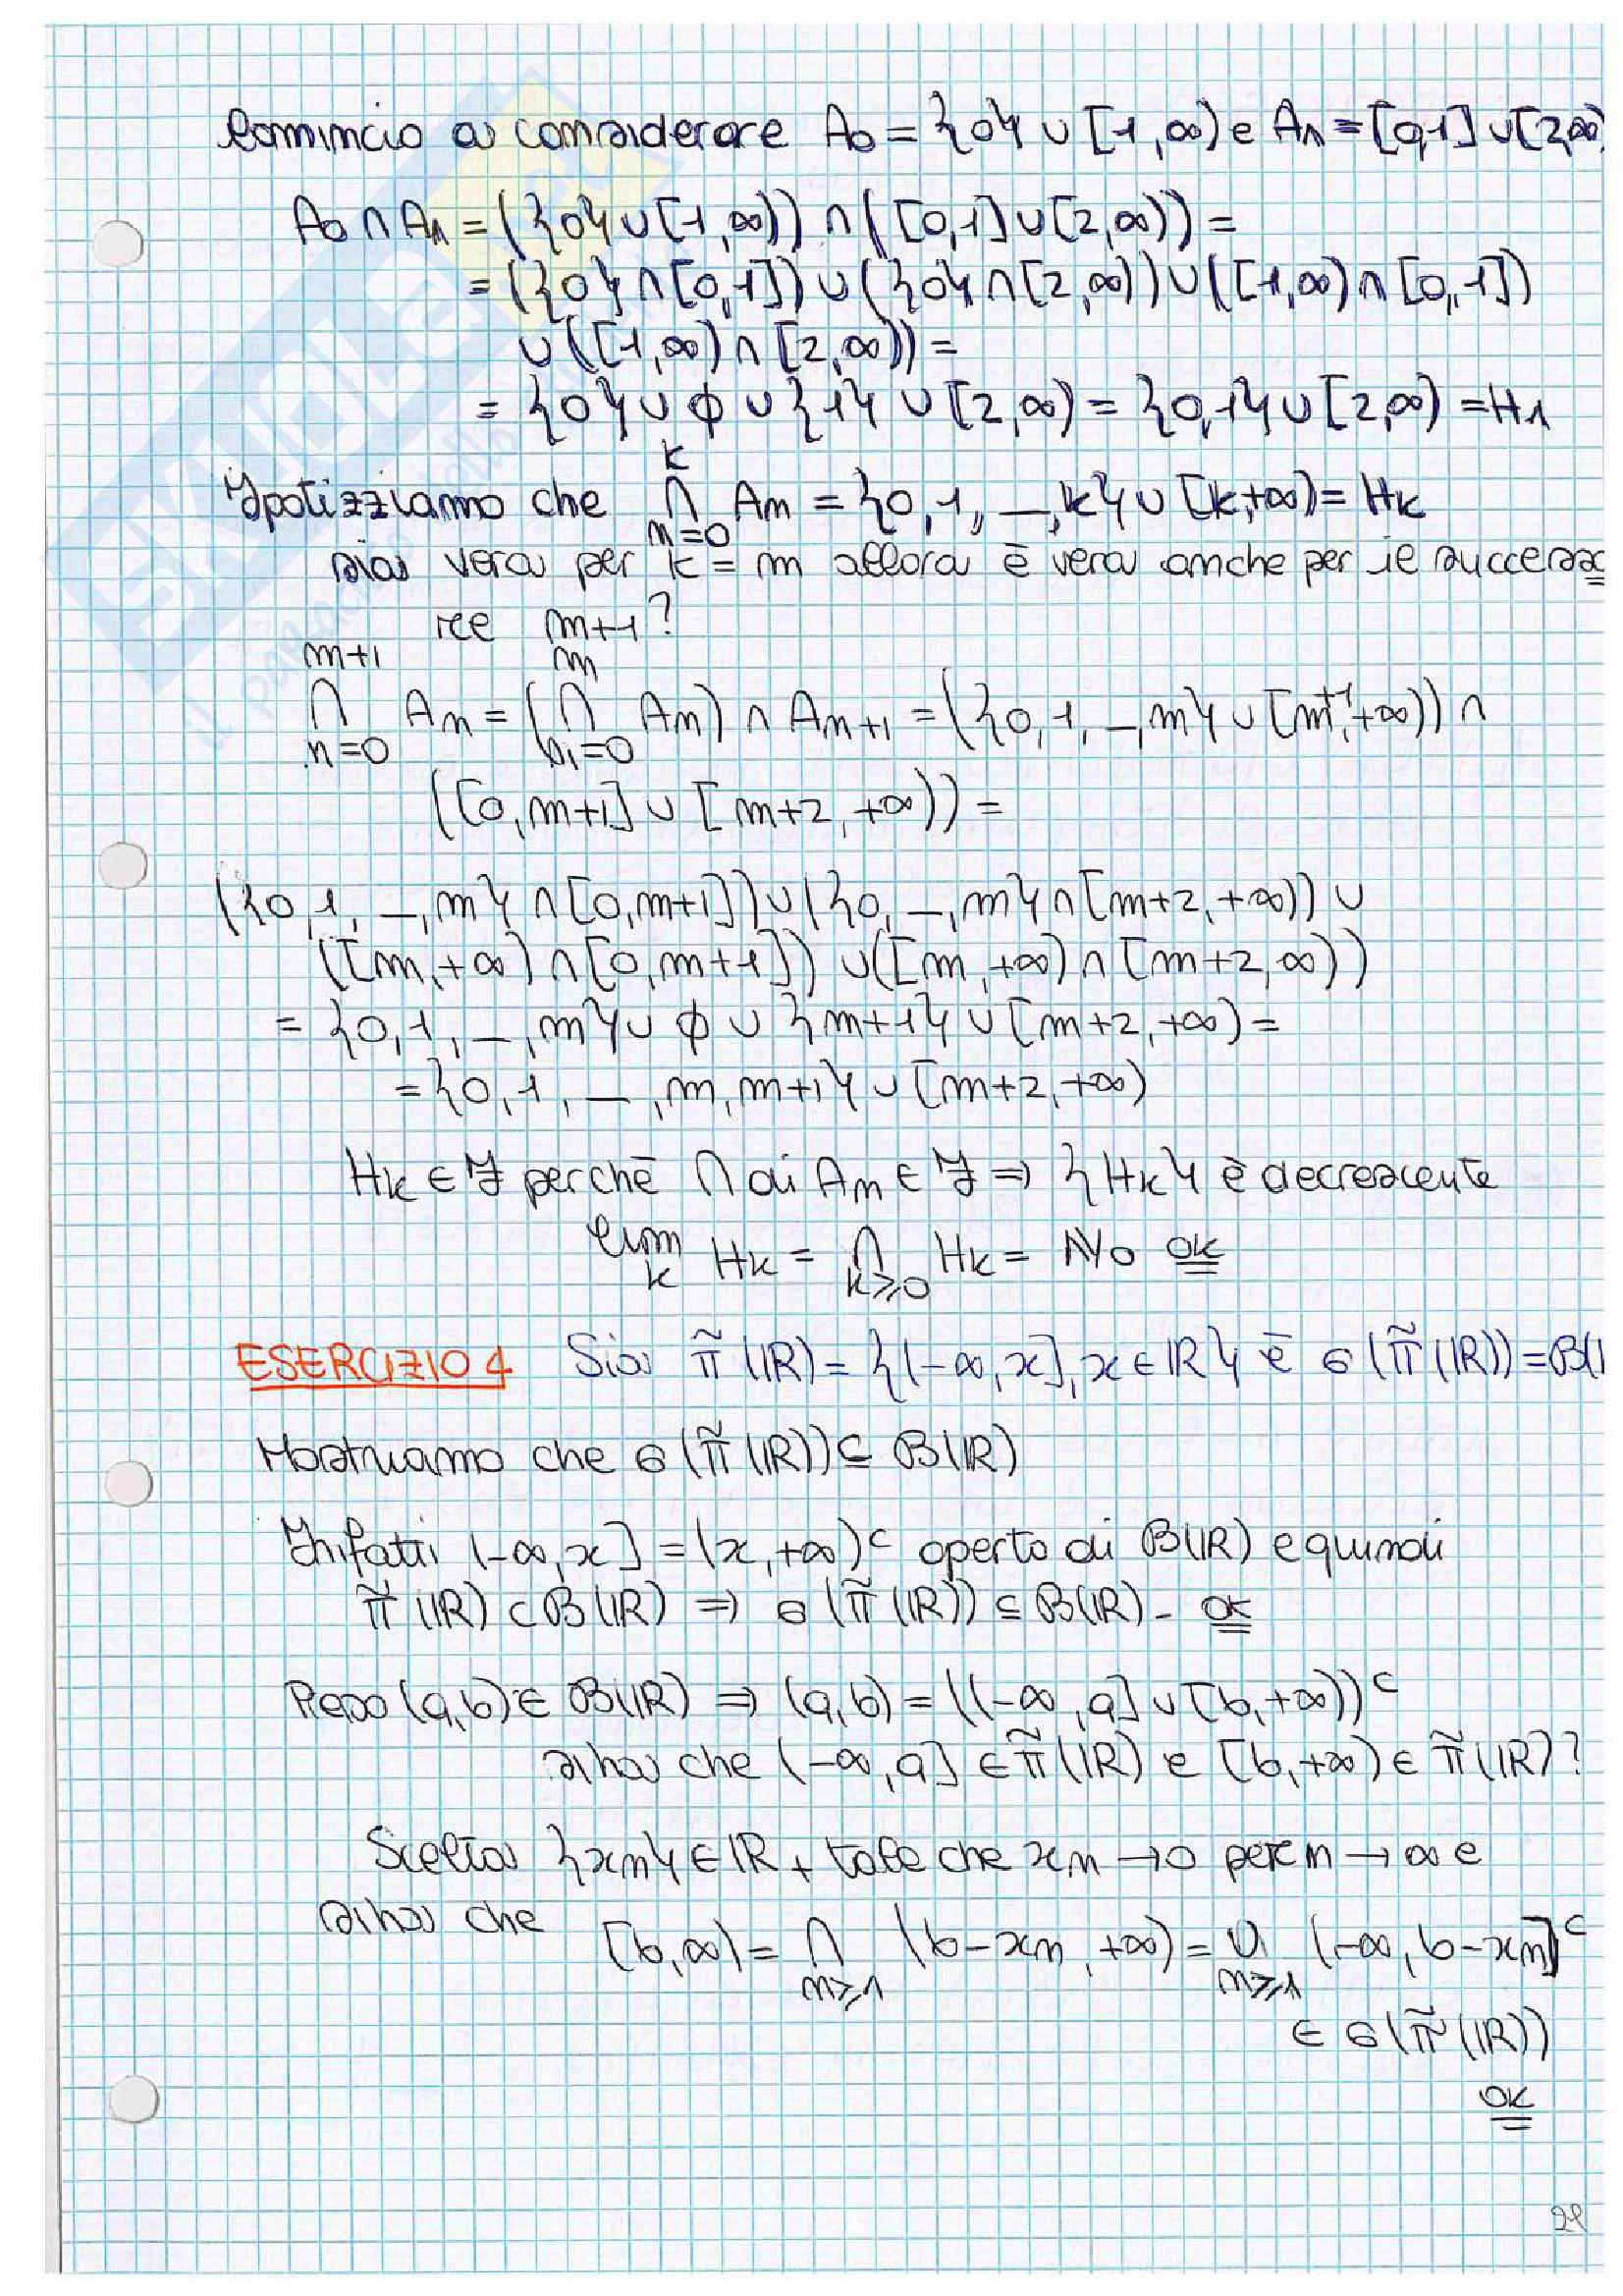 Comincio a considerare A0 = {0} ∪ [1,∞) e A1 = [0,1] ∪ [2,∞)
A0 ∩ A1 = ({0} ∪ [1,∞)) ∩ ([0,1] ∪ [2,∞)) =
= ({0} ∩ [0,1]) ∪ ({0} ∩ [2,∞)) ∪ ([1,∞) ∩ [0,1])
∪ ([1,∞) ∩ [2,∞)) =
= {0} ∪ ϕ ∪ {1} ∪ [2,∞) = {0,1} ∪ [2,∞) = H1
Ipotizziamo che ⋂_{n=0}^{k} An = {0,1,_,k} ∪ [k,+∞) = Hk
sia vera per k = m allora è vera anche per il successo
re m+1?
⋂_{n=0}^{m+1} An = (⋂_{n=0}^{m} An) ∩ Am+1 = ({0,1,_,m} ∪ [m+1,+∞)) ∩
([0,m+1] ∪ [m+2,+∞)) =
({0,1,_,m} ∩ [0,m+1]) ∪ ({0,_,m} ∩ [m+2,+∞)) ∪
([m,+∞) ∩ [0,m+1]) ∪ ([m,+∞) ∩ [m+2,∞))
= {0,1,_,m} ∪ ϕ ∪ {m+1} ∪ [m+2,+∞) =
= {0,1,_,m,m+1} ∪ [m+2,+∞)
Hk ∈ ℱ perchè ∩ di An ∈ ℱ ⇒ {Hk} è decrescente
lim_k Hk = ⋂_{k≥0} Hk = ℕ0 OK
ESERCIZIO 4 Sia π̃(ℝ) = {(-∞,x], x∈ℝ} è σ(π̃(ℝ)) = B(ℝ
Mostriamo che σ(π̃(ℝ)) ⊆ B(ℝ)
Infatti (-∞,x] = (x,+∞)^c aperto di B(ℝ) e quindi
π̃(ℝ) ⊂ B(ℝ) ⇒ σ(π̃(ℝ)) ⊆ B(ℝ) - OK
Preso (a,b) ∈ B(ℝ) ⇒ (a,b) = ((-∞,a] ∪ [b,+∞))^c
si ha che (-∞,a] ∈ π̃(ℝ) e [b,+∞) ∈ π̃(ℝ)?
Scelta {xn} ∈ ℝ+ tale che xn → 0 per n → ∞ e
si ha che [b,∞) = ⋂_{n≥1} (b-xn,+∞) = ⋂_{n≥1} (-∞,b-xn]^c
∈ σ(π̃(ℝ))
OK